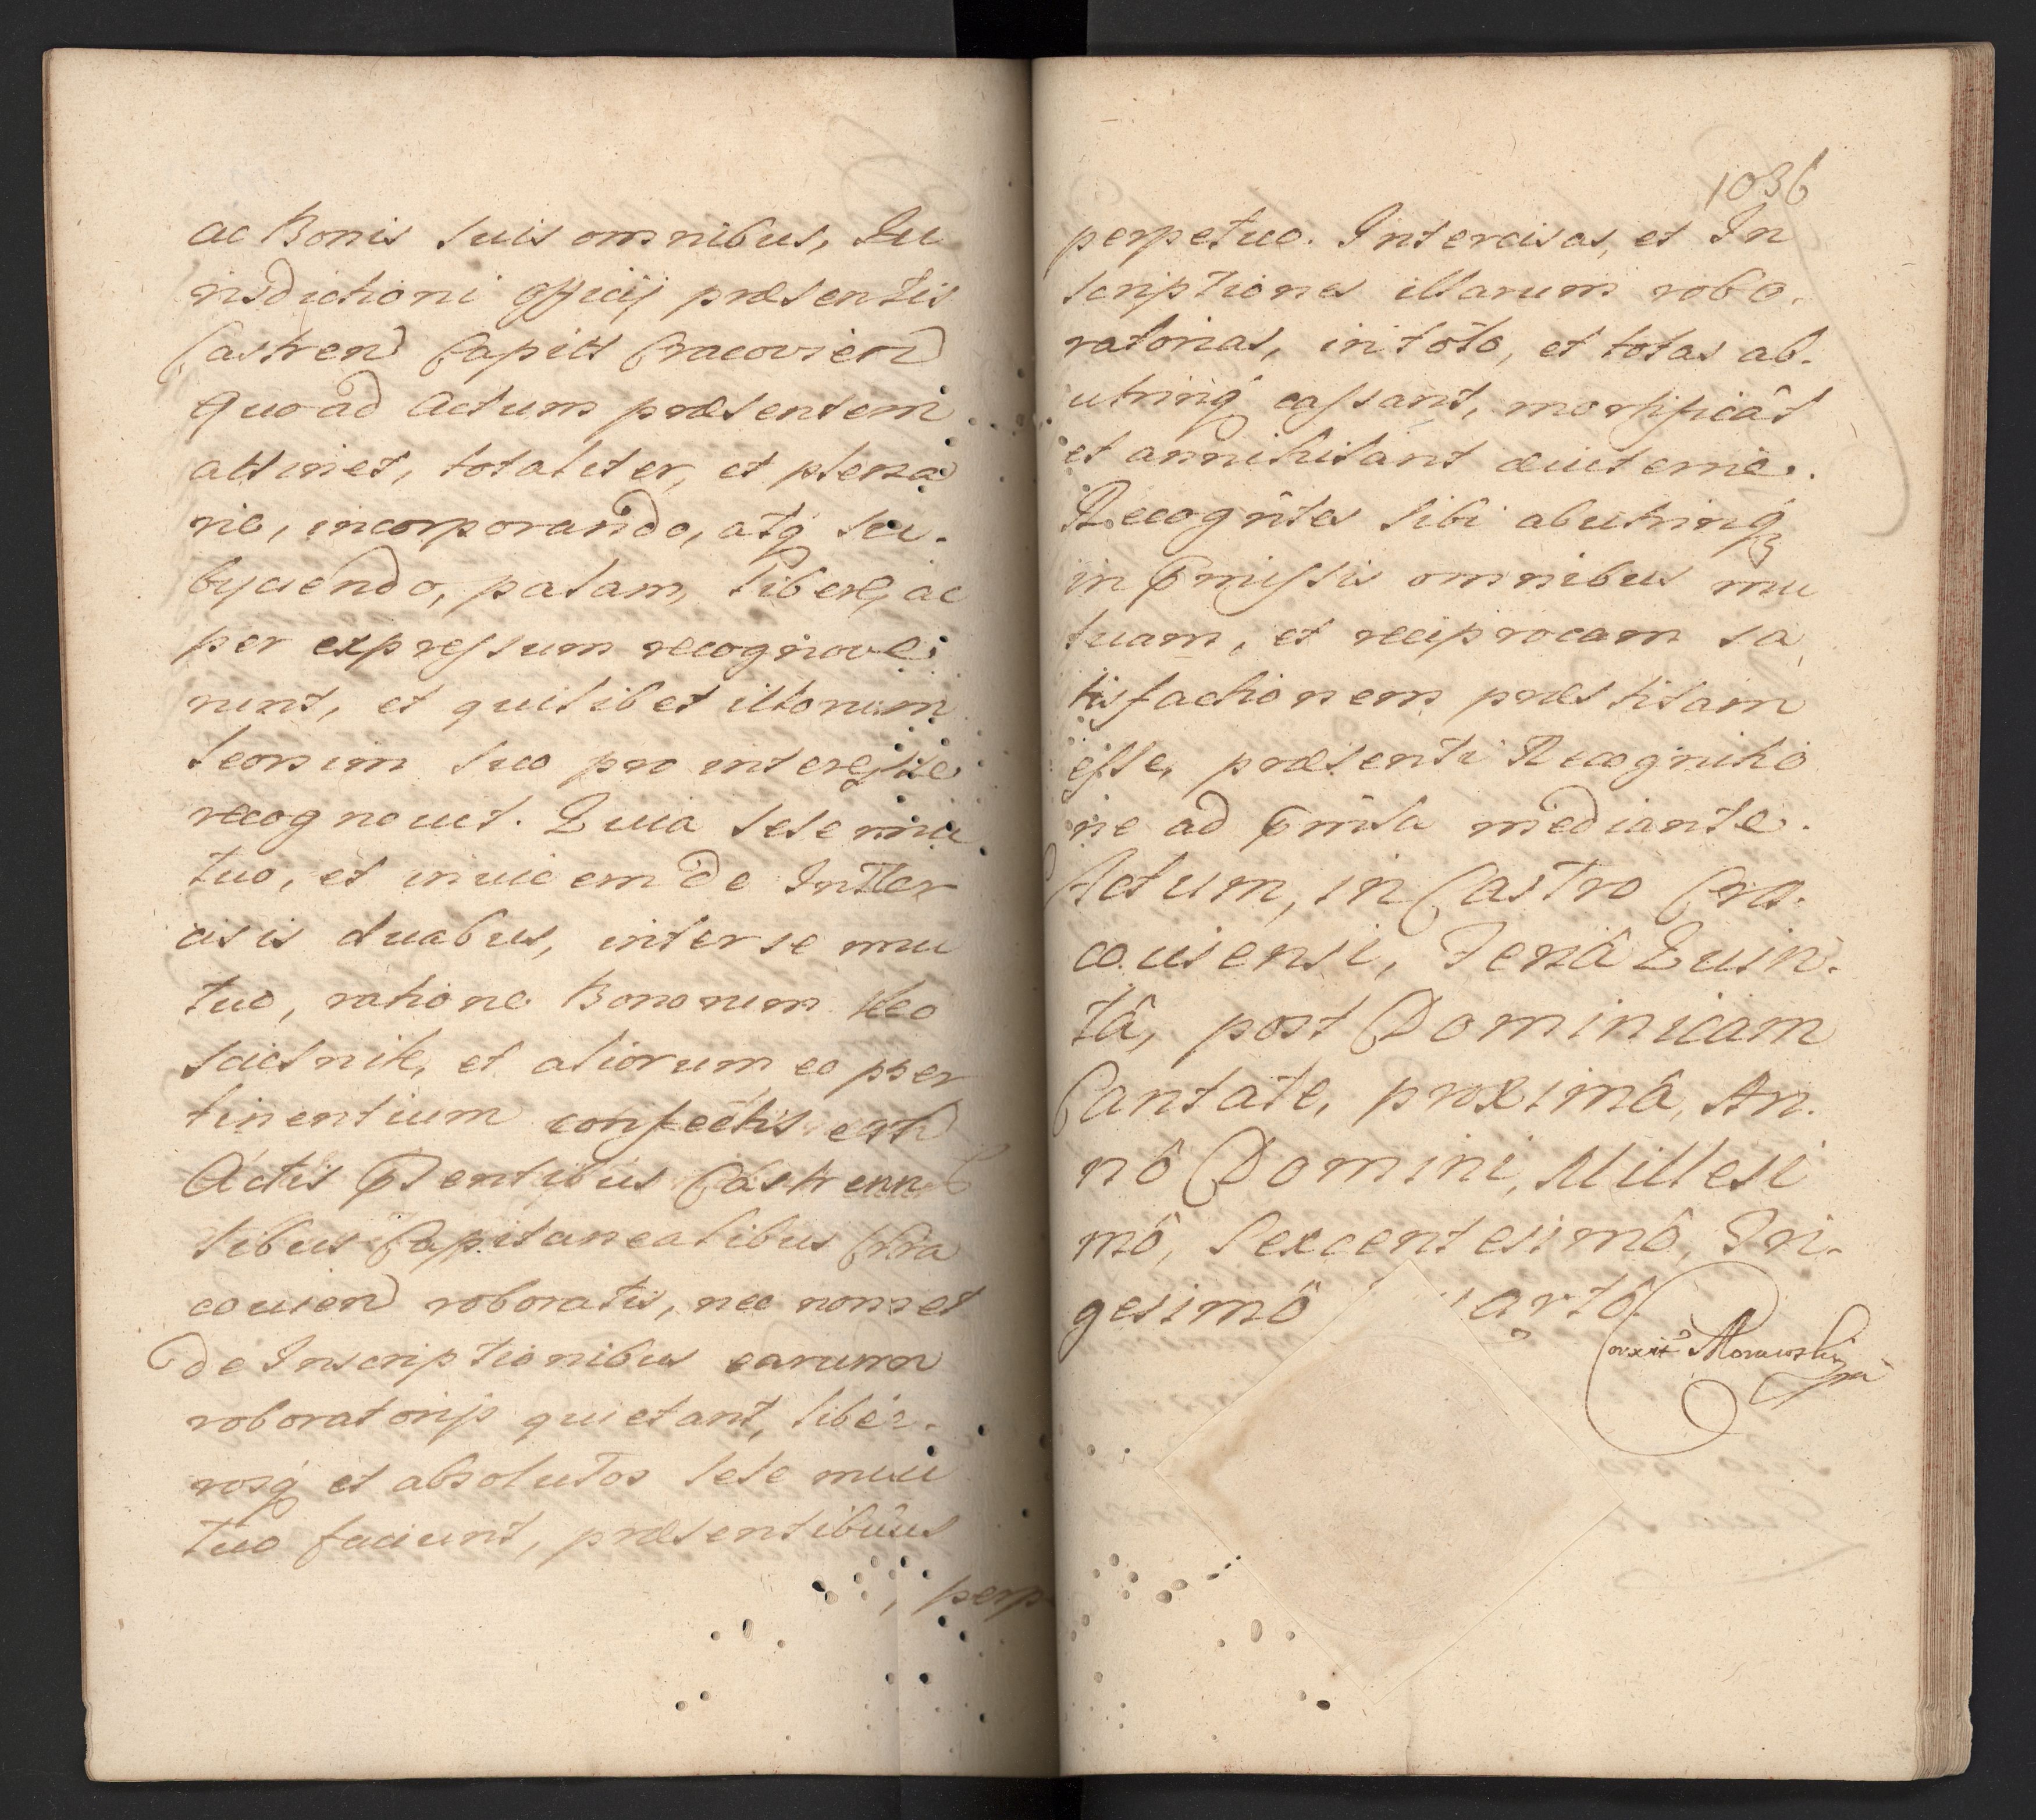 ac Bonis suis omnibus, Iu
risdictioni officij præsentis
Castren Capitt Cracovien
Quoad Actum præsentem
attinet, totaliter, et plena
rie, incorporando, atq su-
byciendo, palam, libere, ac
per expressum recognove
runt, et quilibet illorum
seorsim suo pro interesse
recognouit. Quia sese mu
tuo, et inuicem de Inter
cisis duabus, inter se mu
tuo, ratione Bonorum
et aliorum eo pper
tinentium confectis
Actis Psentibus Castren
sibus Capitanealibus Cra
couien roboratis, nec non et
de Inscriptionibus earum
roboratorijs quietant, libe-
rosq et absolutos sese mu
tuo faciunt, præsentibus
perp
1036
perpetuo. Intercisas, et In
scriptiones illarum robo-
ratorias, in toto, et totas ab-
utrinq cassant, mortificât
et annihilant æuiterne.
Recognôtes sibi abutrinq
in pmissis omnibus mu
tuam, et reciprocam sa
tisfactionem præstitam
esse, præsenti Recognitio
ne ad pmîsa mediante.
Actum, in Castro Cra-
couiensi, Feriâ Quin-
tâ, post Dominicam
Cantate, proximâ, An-
nô Domini, Millesi
mô, Sexcentesimô, Tri-
gesimô artô
Corxit Morawski mp